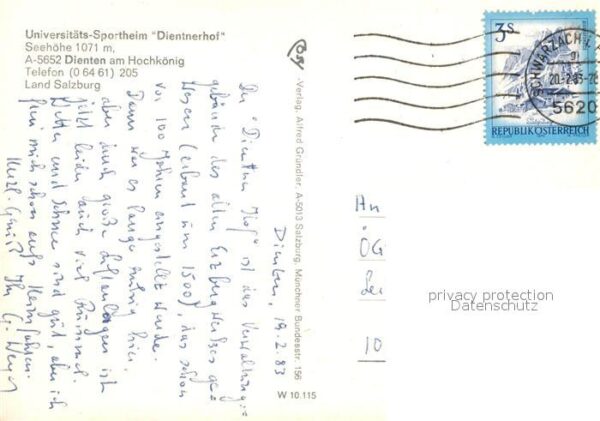 Universitäts-Sportheim "Dientnerhof"
Seehöhe 1071 m,
A-5652 Dienten am Hochkönig
Telefon (0 64 61) 205
Land Salzburg
Verlag Alfred Gründler, A-5013 Salzburg, Münchner Bundesstr. 156
W 10.115
3s
REPUBLIK ÖSTERREICH
SCHWARZACH
20.-2.83
5620
Dienten, 19.2.83
Der "Dientner Hof" ist das Verwaltungs-
gebäude des alten Erzbergwerkes ge-
wesen (erbaut um 1500), das schon
vor 100 Jahren eingestellt wurde.
Dann war es lange ruhig hier,
aber durch große Liftanlagen ist
jetzt leider auch viel Rummel.
Wetter und Schnee sind gut, aber ich
freu mich schon aufs Heimfahren.
Herzl. Grüß Ihr G.
An
ÖG
10
privacy protection
Datenschutz